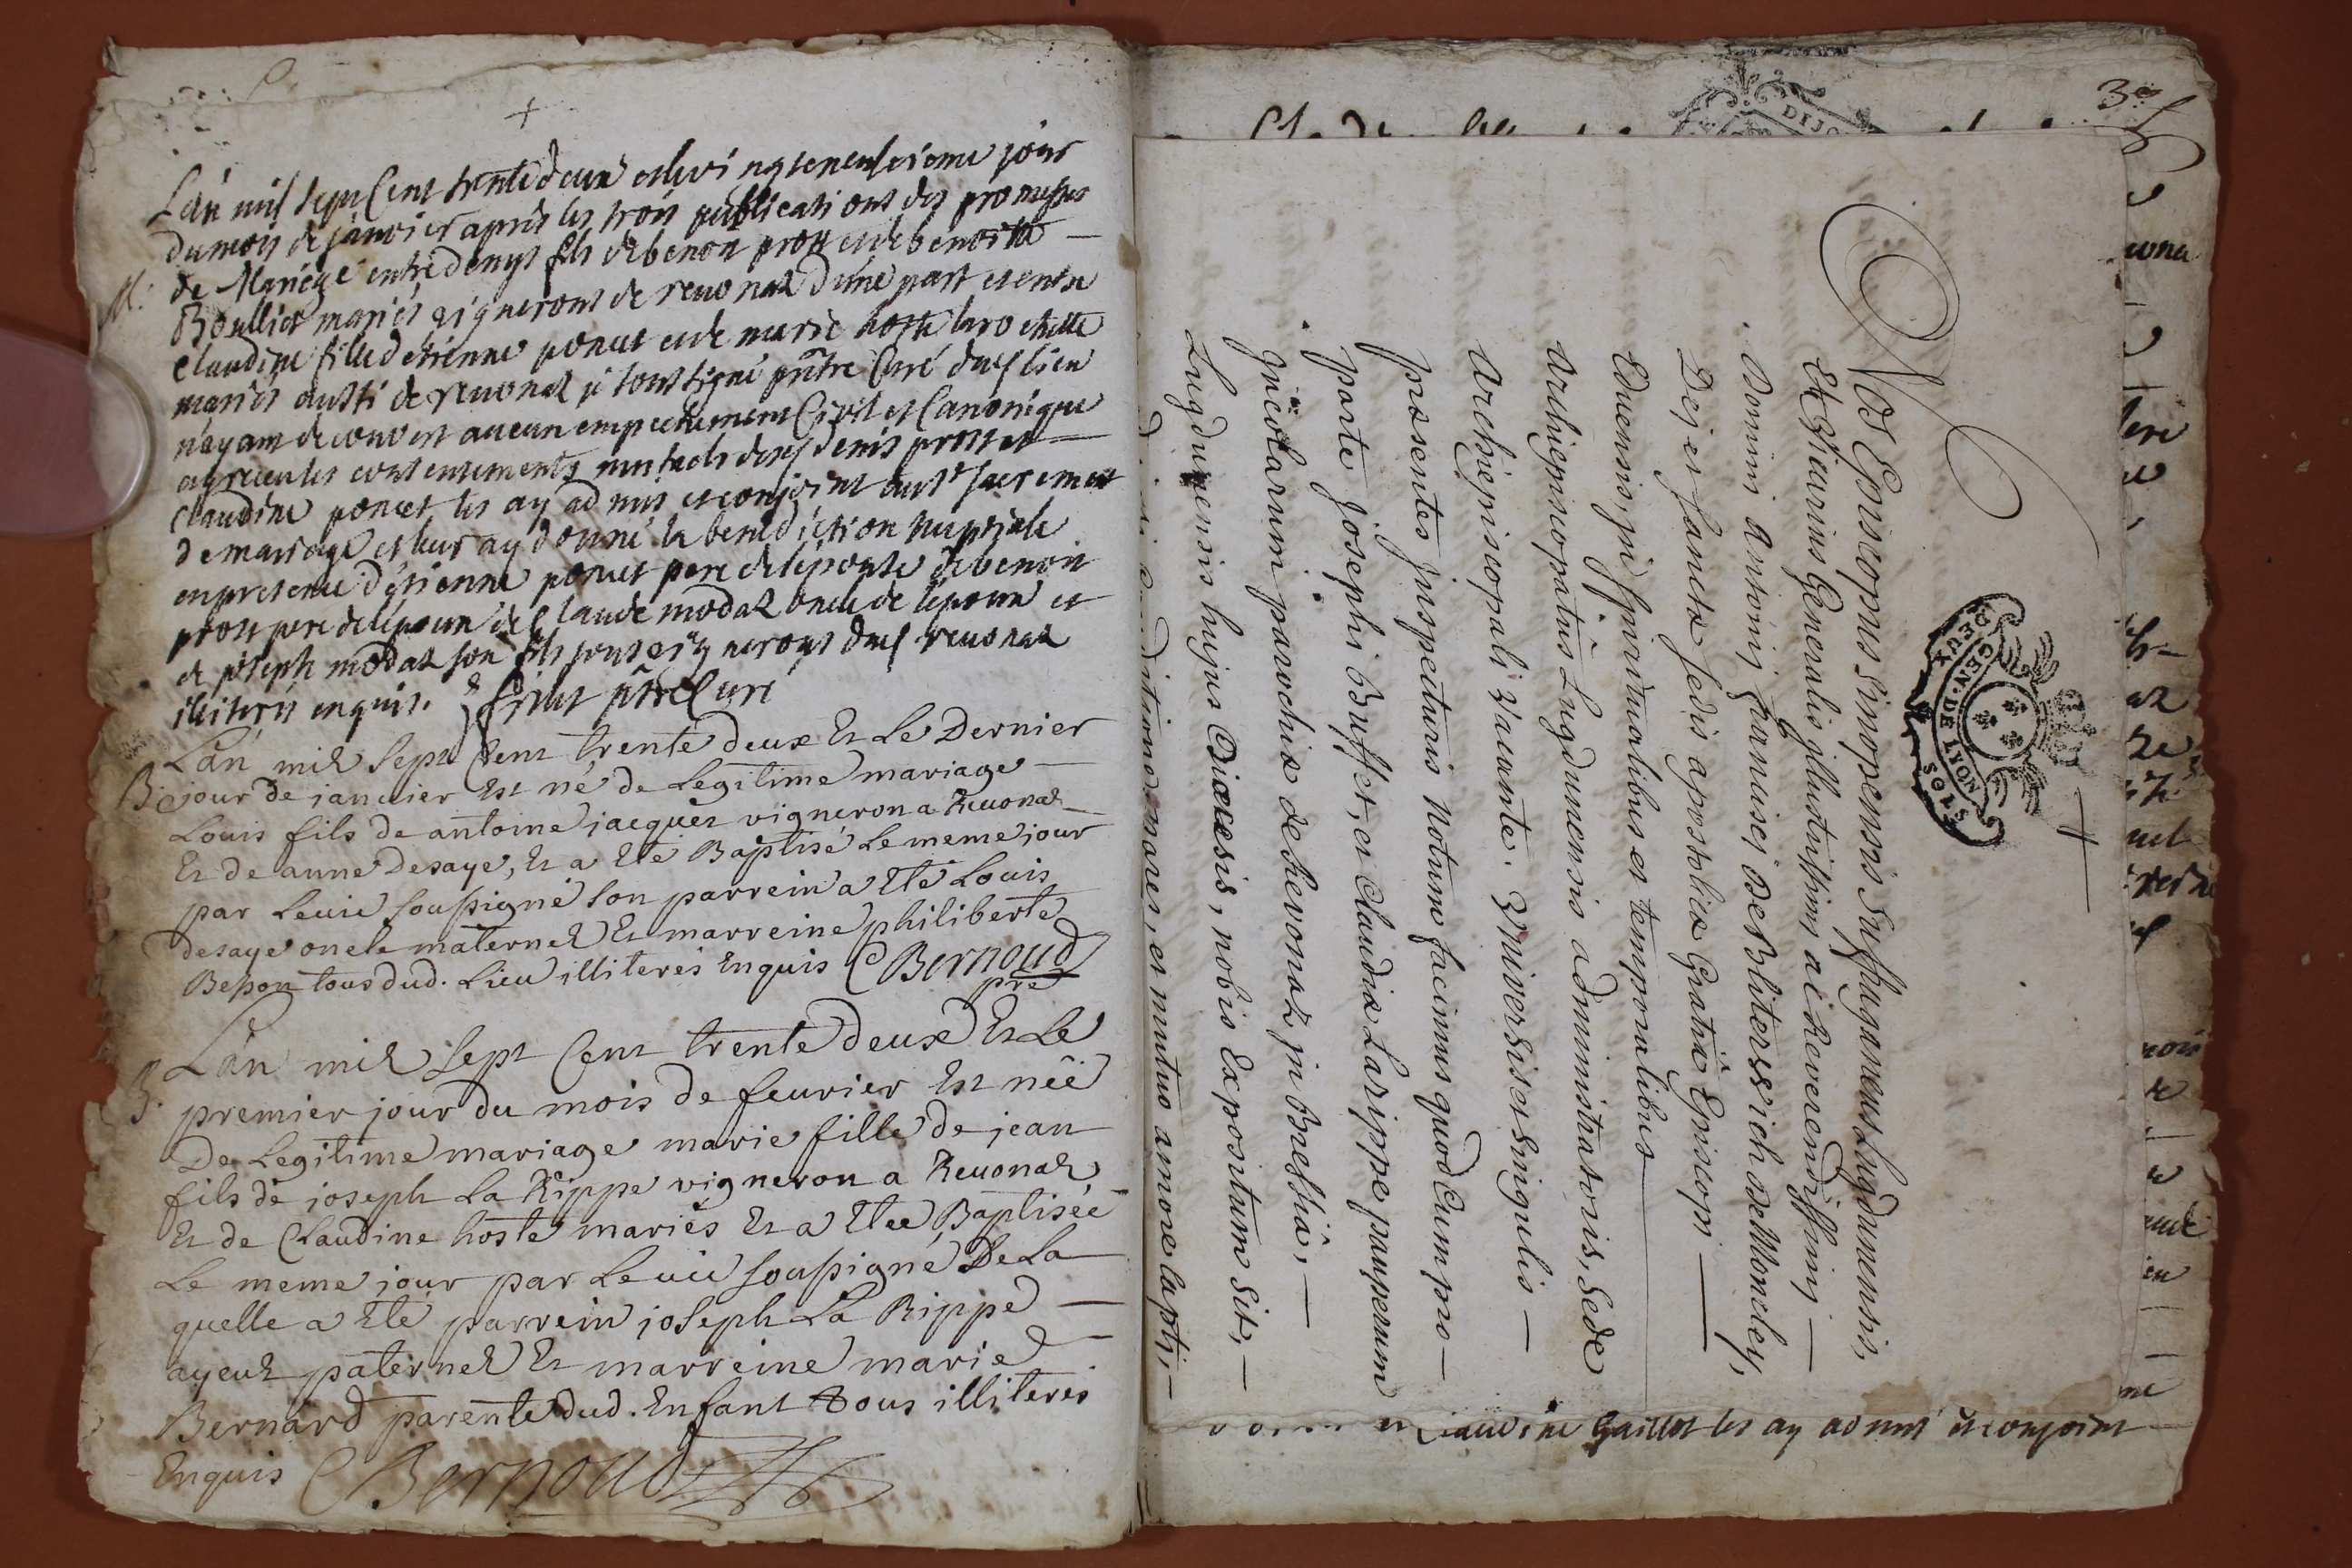 L'an mil sept Cent trente deux et le vingt neufvieme jour
du mois de janvier apres les trois publications des promesses
M. de Mariage entre denys fils de benoit prost et de benoite
Boullier mariés vignerons de revonaz d'une part et entre
Claudine fille d'etienne poncet et de marie hoste la rochette
mariés aussi de revonaz je soussigné prêtre Curé dud lieu
n'ayant decouvert aucun empechement Civil et Canonique
ay receu les consentements mutuels desd denis prost et
Claudine poncet les ay admis et conjoint au St Sacrement
de mariage et leur ay donné la benediction nuptiale
en presence d'etienne poncet pere de l'epouse de benoit
prost pere de l'epoux de Claude modaz oncle de l'epoux et
de joseph modaz son fils tous vignerons dud revonaz
illiterés enquis. prêtre Curé
L'an mil Sept Cent trente deux Et Le Dernier
B. jour de janvier Est né de Legitime mariage
Louis fils de antoine jacquet vigneron a Revonaz
Et de anne Desaye, Et a Eté Baptisé Le meme jour
par Levic soussigné son parrein a Eté Louis
desaye oncle maternel Et marreine philiberte
Beson tous dud. Lieu illiteres Enquis Bernoud
pre
L'an mil Sept Cent trente deux Et Le
B. premier jour du mois de feuvrier Est née
De Legitime mariage marie fille de jean
fils de joseph La Rippe vigneron a Revonaz
Et de Claudine hoste mariés Et a Etee Baptisée
Le meme jour par Levic soussigné De La
quelle a Eté parrein joseph La Rippe
ayeul paternel Et marreine marie
Bernard parente dud. Enfant Tous illiteres
Enquis Bernoud
3e
DIJO
GEN. DE MONT
DEUX
S. LOS
Nos Episcopus Sinopensis Suffraganeus Lugdunensis,
Et Vicarius Generalis illustrissimi ac Reverendissimi
Domini Antonij Francisci De Bliterswich de Moncley,
Dei et sanctæ sedis apostolicæ Gratiâ Episcopi
Eduensis, in spiritualibus et temporalibus
Archiepiscopatûs Lugdunensis administratoris, Sede
Archiepiscopali vacante. Universis et Singulis
præsentes inspecturis Notum facimus quod Cum pro
parte Josephi Buffet, et Claudiæ Larippe pauperum
incolarum parochiæ de Revonaz in Bressiâ,
Lugdunensis hujus Diœcesis, nobis Expositum sit,
mares, et mutuo amore capti,
Claudine Gaillot les ay admis et conjoint